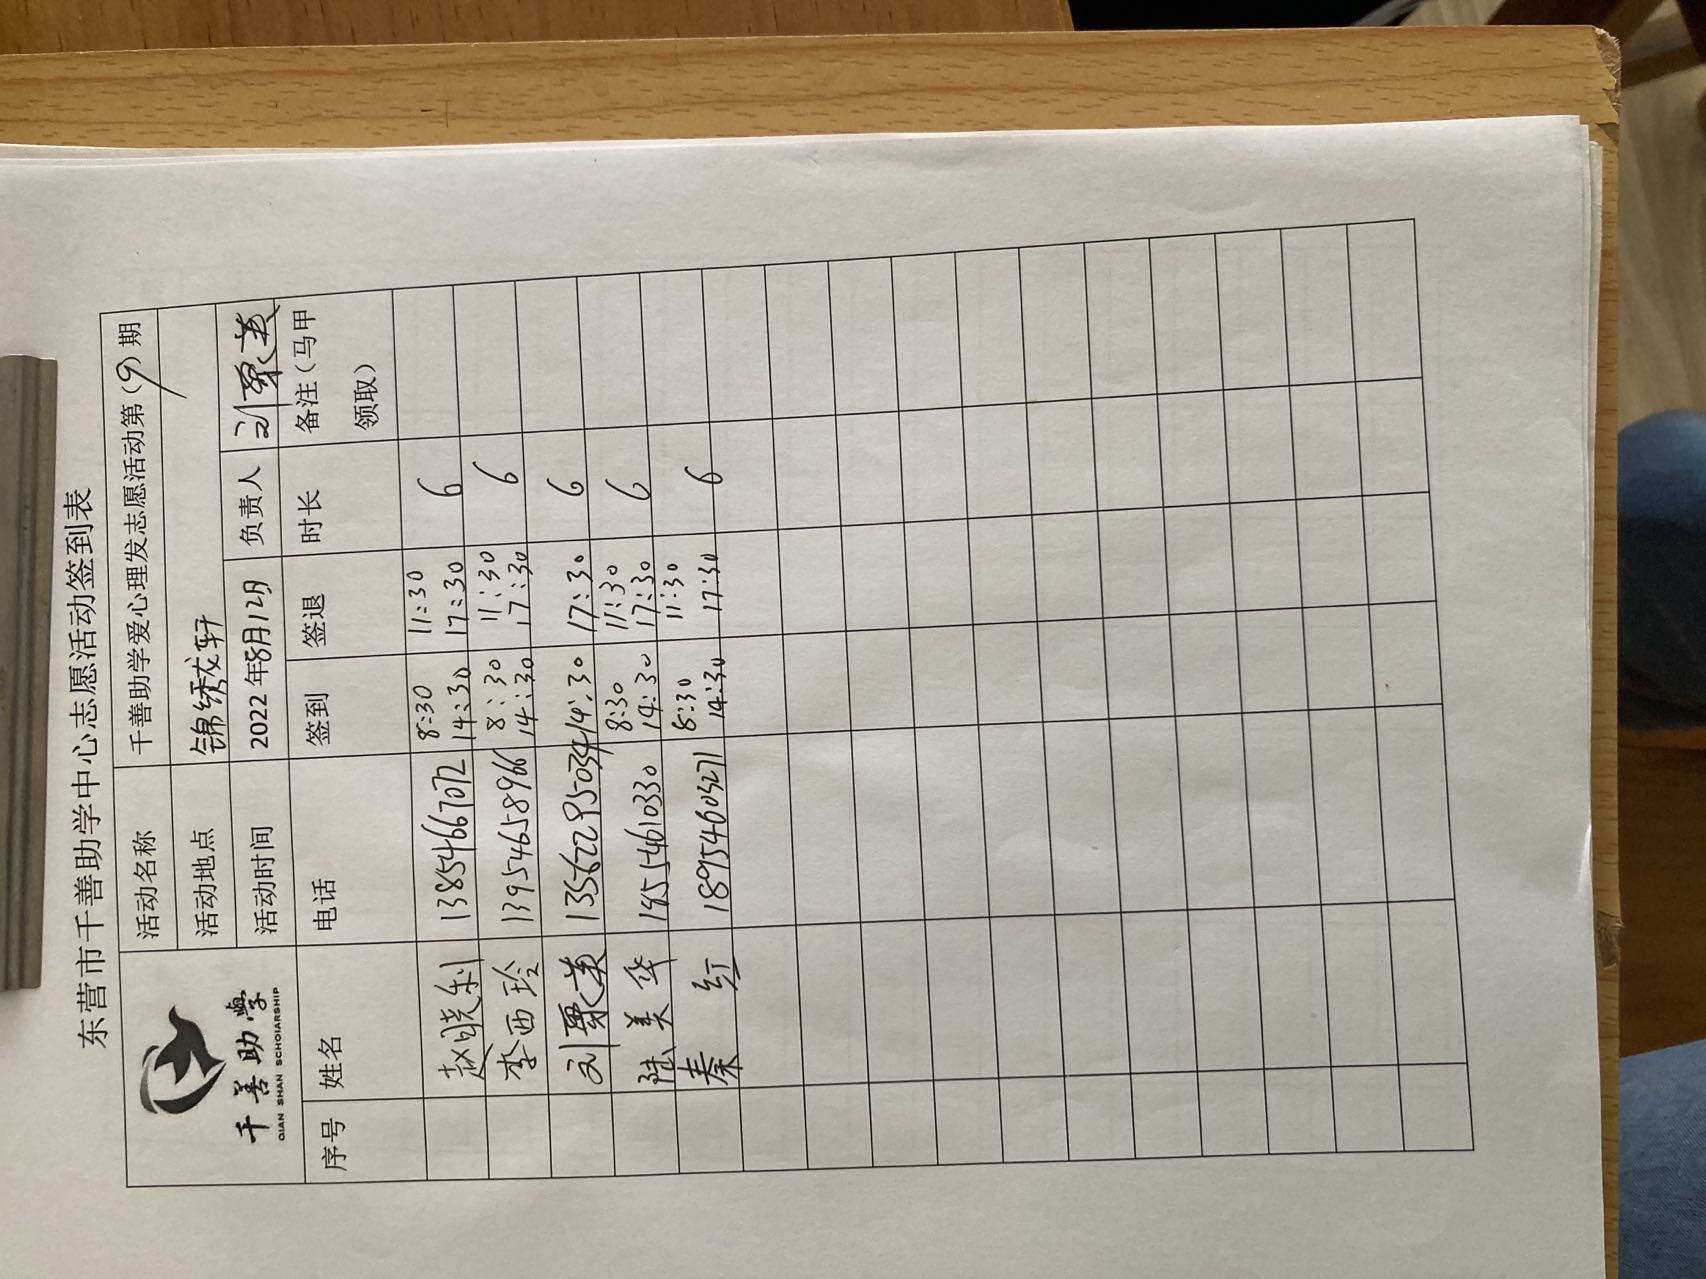 东营市千善助学中心志愿活动签到表
千善助學
QIAN SHAN SCHOIARSHIP
活动名称 千善助学爱心理发志愿活动第（9）期
活动地点 锦绣龙轩
活动时间 2022年8月12日 负责人 刘翠英
序号 姓名 电话 签到 签退 时长 备注（马甲
领取）
8:30 11:30
赵晓利 13854667072 14:30 17:30 6
8:30 11:30
李西玲 13954658966 14:30 17:30 6
刘翠英 13562295034 14:30 17:30 6
8:30 11:30
陆美华 18554610330 14:30 17:30 6
8:30 11:30
秦红 18954605271 14:30 17:30 6